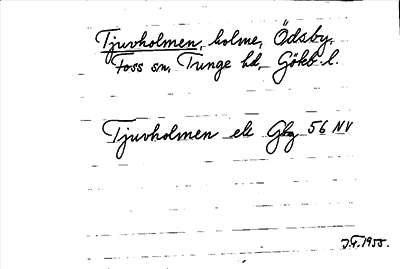 Tjuvholmen, holme, Ödsby,
Foss sn, Tunge hd, Göteb. l.
Tjuvholmen ek Gbg 56 NV
1955.